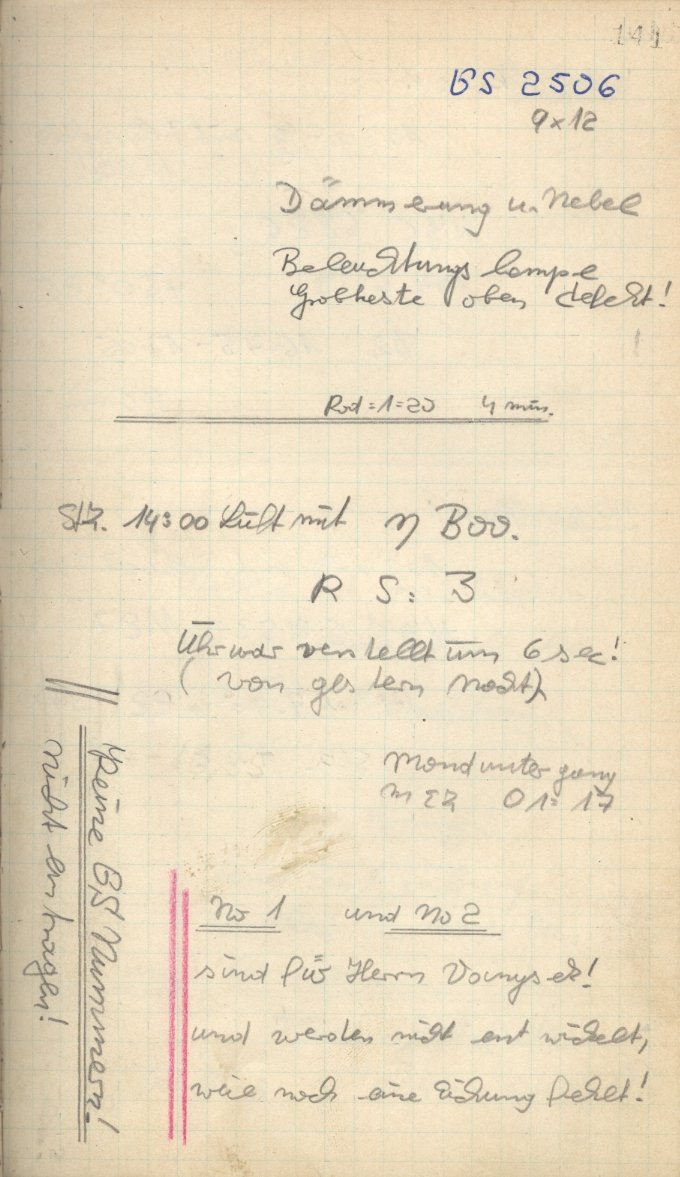 141
GS 2506
9x12
Dämmerung u. Nebel
Beleuchtungslampe
oben defekt!
Rod = 1 = 20 4 min.
StZ. 14:00 Luft mit η Boo.
R S: 3
Uhr war verstellt um 6 sec!
(von gestern Nacht)
Monduntergang
MEZ 01:17
No 1 und No 2
sind für Herrn Vanysek!
und werden nicht entwickelt,
weil noch eine Eichung fehlt!
Keine GS Nummern!
nicht eintragen!